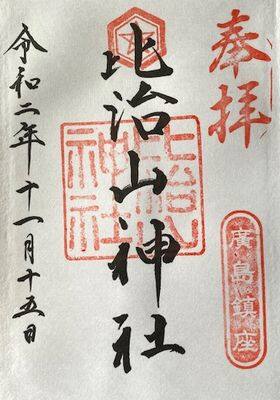 奉拝
廣島鎮座
比治山神社
比治山
神社
令和二年十一月十五日